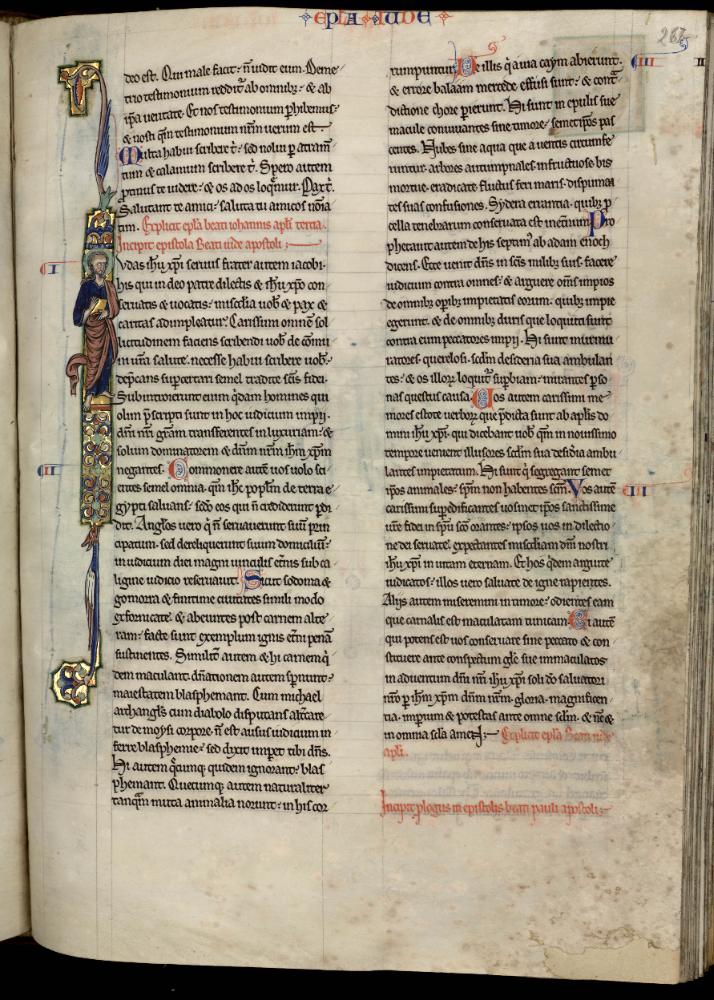 EPLA IUDE
267
deo est. Qui male facit: n̄ uidit eum. Deme
trio testimonium reddit̄ ab omnib;: & ab
ip̄a ueritate. Et nos testimonium p̄hibemus:
& nosti qm̄ testimonium nr̄m uerum est.
Multa habui scribere t̄: sed nolui p̄ atram̄
tum & calamum scribere t̄. Spero autem
protinus te uidere: & os ad os loq̄mur. Pax t̄.
Salutant te amici: saluta tu amicos noīa
tim. Explicit epl̄a beati iohannis apl̄i tercia.
Incipit epistola Beati iude apostoli;
I
Iudas ih̄u xp̄i seruus frater autem iacobi:
his qui in deo patre dilectis & ih̄u xp̄o con
seruatis & uocatis: misc̄dia uob̄ & pax &
caritas adimpleatur. Carissimi omnē sol
licitudinem faciens scribendi uob̄ de cōmuni
in ur̄a salute: necesse habui scribere uob̄:
dep̄cans supcertari semel tradite sc̄is fidei.
Subintroierunt enim q̄dam homines qui
olim p̄scripti sunt in hoc iudicium impij:
dn̄i nr̄i gr̄am transferentes in luxuriam: &
solum dominatorem & dn̄m nr̄m ih̄m xp̄m
II
negantes. Commonere autē uos uolo sci
entes semel omnia. qm̄ ih̄c pop̄lm de terra e
gypti saluans: sed̄o eos qui n̄ crediderunt pdi
dit. Angl̄os uero q̄ n̄ seruauerunt suū prin
cipatum. sed dereliquerunt suum domiciliū:
in iudicium diei magni uinculis et̄nis sub ca
ligine iudicio reseruauit. Sicut sodoma &
gomorra & finitime ciuitates simili modo
exfornicate. & abeuntes post carnem alte
ram: facte sunt exemplum ignis et̄ni penā
sustinentes. Similit̄ autem & hi carnem q̄
dem maculant. dn̄ationem autem spnunt:
maiestatem blasphemant. Cum michael
archangl̄s cum diabolo disputans altc̄are
tur de moysi corpore. n̄ est ausus iudicium in
ferre blasphemie: sed dixit impet tibi dn̄s.
Hi autem q̄cumq; quidem ignorant: blas
phemant. Quecumq; autem naturaliter
tanq̄m muta animalia norunt: in his cor
rumpuntur. Ve illis q̄ a uia caym abierunt:
III
& errore balaam mercede effusi sunt: & cont̄
dictione chore pierunt. Hi sunt in epulis sue
macule conuiuantes sine timore: semetip̄os pas
centes. Nubes sine aqua que a uentis circumfe
runtur. arbores autumpnales infructuose bis
mortue. eradicate. fluctus feri maris. dispuman
tes suas confusiones. Sydera errantia: quib; p̄
cella tenebrarum conseruata est inet̄num. Pro
phetauit autem de his septim̄ ab adam enoch
dicens. Ecce uenit dn̄s in sc̄is milib; suis. facere
iudicium contra omnes: & arguere om̄s impios
de omnib; op̄ib; impietatis eorum: quib; impie
egerunt. & de omnib; duris que loquuti sunt
contra eum peccatores impij. Hi sunt murmu
ratores querelosi. scd̄m desideria sua ambulan
tes: & os illor̄ loquit̄ supbiam: mirantes p̄so
nas questus causa. Uos autem carissimi me
mores estote uerbor̄ que p̄dicta sunt ab apl̄is do
mini ih̄u xp̄i. qui dicebant uob̄ qm̄ in nouissimo
tempore uenient illusores scd̄m sua desidia ambu
lantes impietatum. Hi sunt q̄ segregant semet
ip̄os animales: spm̄ non habentes sc̄m. Vos autē
IIII
carissimi supedificantes uosmet ip̄os sanctissime
ur̄e fidei in spū sc̄o orantes: ipsos uos in dilectio
ne dei seruate. expectantes misc̄diam dn̄i nostri
ih̄u xp̄i in uitam eternam. Et hos q̄dem arguite
iudicatos: illos uero saluate de igne rapientes.
Alijs autem miseremini in timore: odientes eam
que carnalis est maculatam tunicam. Ei autē
qui potens est uos conseruare sine peccato & con
stituere ante conspectum glē sue immaculatos
in aduentum dn̄i nr̄i ih̄u xp̄i soli do saluatori
nr̄o p̄ ih̄m xp̄m dn̄m nr̄m. gloria. magnificen
tia. imperium & potestas ante omne scl̄m. & nē &
in omnia scl̄a amen. Explicit epl̄a Beati iude
apl̄i.
Incipit plogus in epistolis beati pauli apostoli;